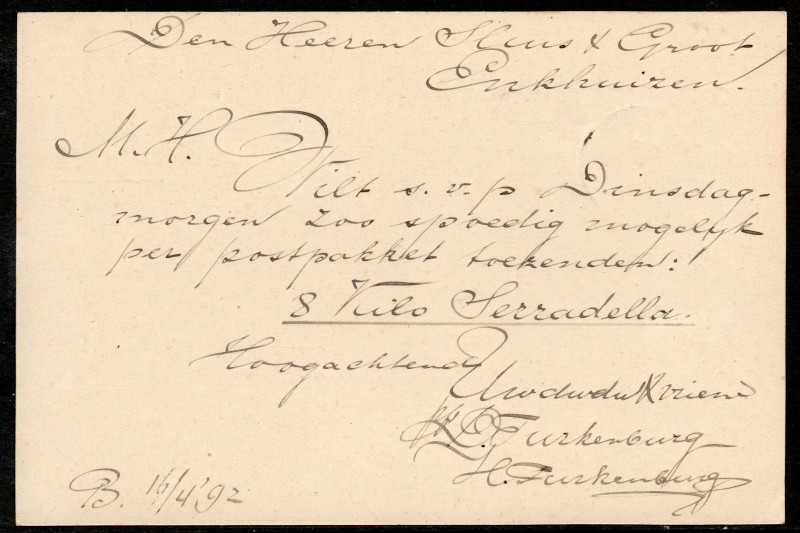 Den Heeren Sluis & Groot
Enkhuizen.
M. H. Wilt s. v. p Dinsdag-
morgen zoo spoedig mogelyk
per postpakket toezenden:
8 Kilo Serradella.
Hoogachtend
Uwdwdn & vriend
pp D. Turkenburg
H. Turkenburg
B. 16/4 '92